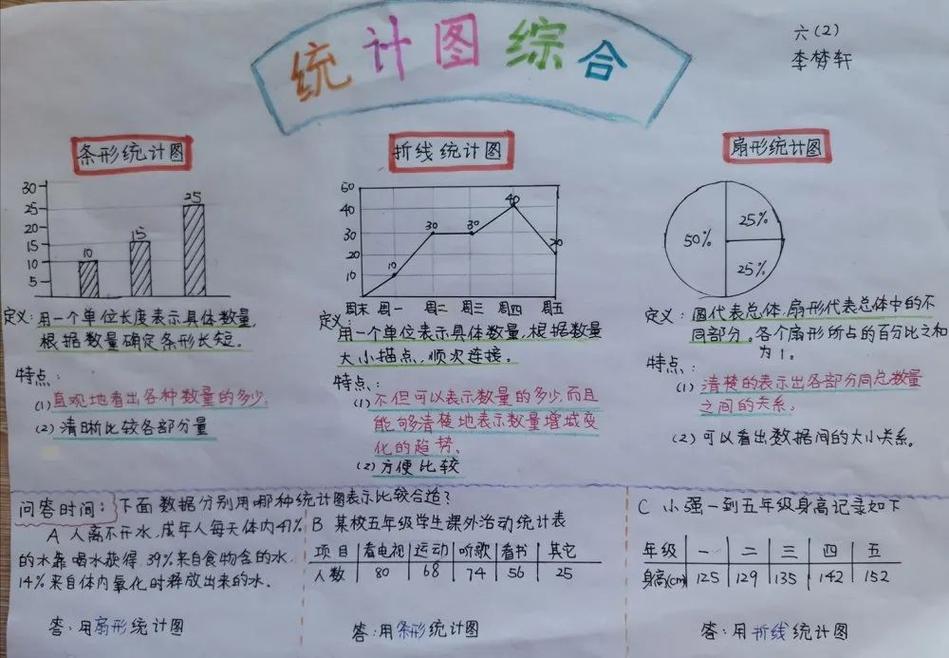 统计图综合
六(2)
李梦轩
条形统计图
30
25
20
15
10
5
10
15
25
定义:用一个单位长度表示具体数量,
根据数量确定条形长短。
特点:
(1)直观地看出各种数量的多少.
(2)清晰比较各部分量
折线统计图
60
40
30
20
10
10
30
30
40
20
周末 周一 周二 周三 周四 周五
定义:
用一个单位表示具体数量,根据数量
大小描点,顺次连接。
特点:
(1)不但可以表示数量的多少,而且
能够清楚地表示数量增域变
化的趋势。
(2)方便比较
扇形统计图
50%
25%
25%
定义:圆代表总体,扇形代表总体中的不
同部分。各个扇形所占的百分比之和
为1。
特点:
(1)清楚的表示出各部分同总数量
之间的关系。
(2)可以看出数据间的大小关系。
问答时间:下面数据分别用哪种统计图表示比较合适?
A 人离不开水,成年人每天体内47%
的水靠喝水获得,39%来自食物含的水,
14%来自体内氧化时释放出来的水.
答:用扇形统计图
B 某校五年级学生课外活动统计表
项目 看电视 运动 听歌 看书 其它
人数 80 68 74 56 25
答:用条形统计图
C 小强一到五年级身高记录如下
年级 一 二 三 四 五
身高(cm) 125 129 135 142 152
答:用折线统计图